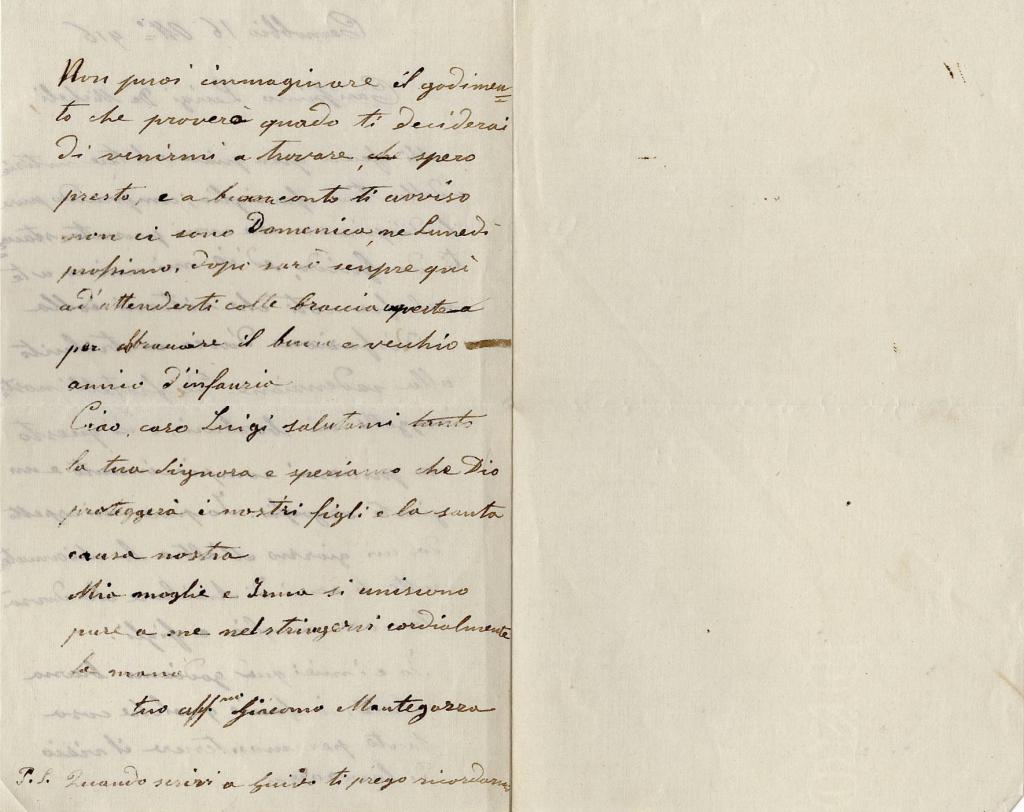 Non puoi immaginare il godimen=
to che proverò quado ti deciderai
di venirmi a trovare, spero
presto, e a buonconto ti avviso
non ci sono Domenica, ne Lunedì
prossimo, dopo sarò senpre quì
ad'attenderti colle braccia aperte
per abbraciare il buon e vecchio
amico d'infanzia
Ciao, caro Luigi salutami tanto
la tua Signora e speriamo che Dio
proteggerà i nostri figli e la santa
causa nostra
Mia moglie e Irma si uniscono
pure a me nel stringervi cordialmente
la mano
tuo aff.mo Giacomo Mantegazza
P.S. Quando scrivi a Guido ti prego ricordarmi